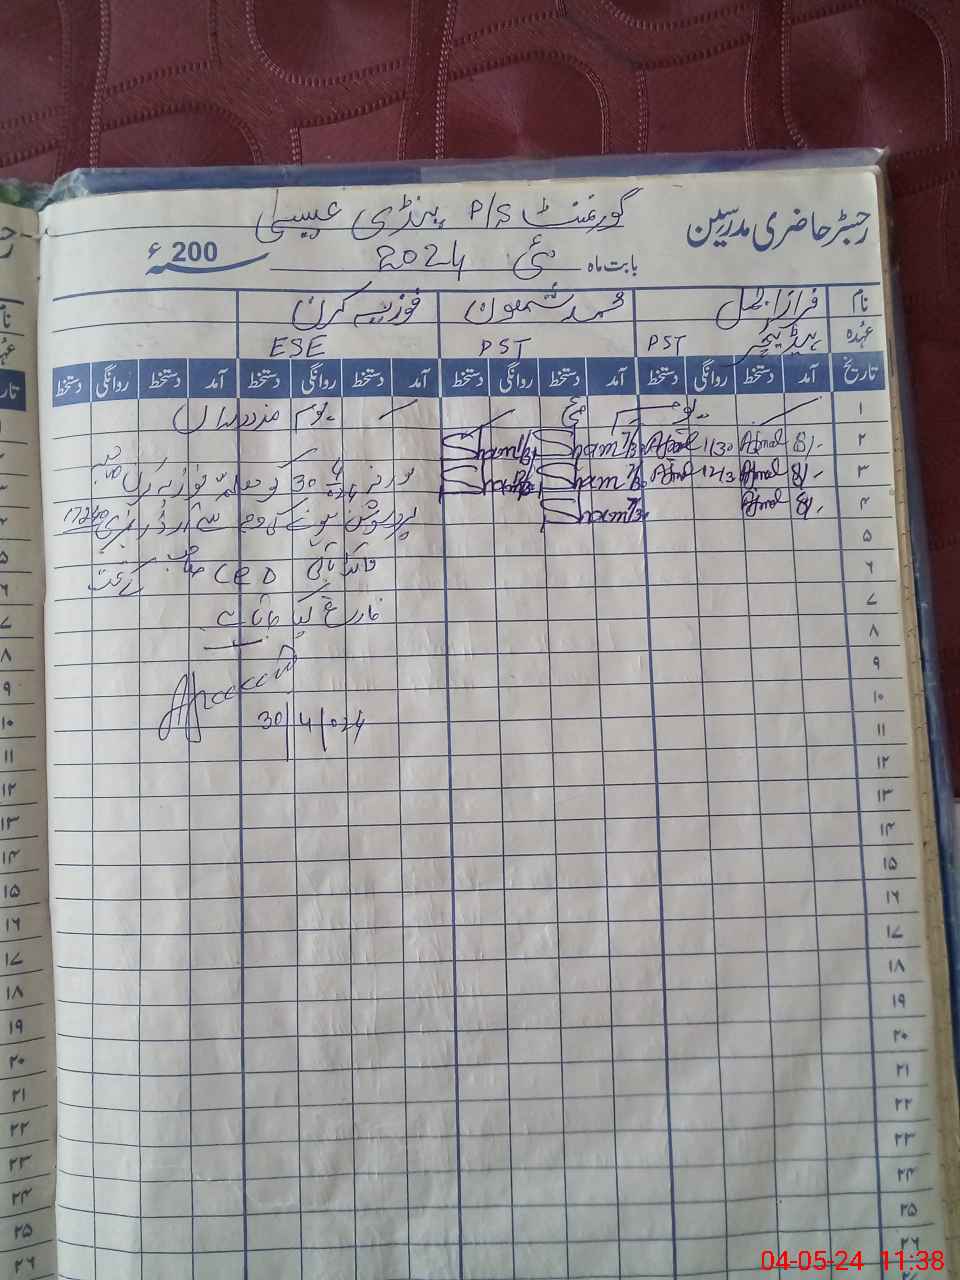 رجسٹر حاضری مدرسین
گورنمنٹ P/S پنڈی عیسیٰ
بابت ماہ مئی 2024 سنہ 200ء
نام فراز افضل محمد شمعون فوزیہ کرن
عہدہ ہیڈ ٹیچر PST PST ESE
تاریخ آمد دستخط روانگی دستخط آمد دستخط روانگی دستخط آمد دستخط روانگی دستخط آمد دستخط روانگی دستخط
۱ یوم مئی یوم مزدوراں
۲ 8/- Afzal 1130 Afzal
۳ 8/- Afzal 1230 Afzal مورخہ 30 4 024 کو
۴ 8/- Afzal پروموشن ہونے کی وجہ سے آرڈر نمبری 17240
۵
۶ CEO صاحب کے تحت
۷
۸ فارغ کیا جاتا ہے
۹
۱۰
۱۱ 30/4/024
۱۲
۱۳
۱۴
۱۵
۱۶
۱۷
۱۸
۱۹
۲۰
۲۱
۲۲
۲۳
۲۴
۲۵
۲۶
04-05-24 11:38